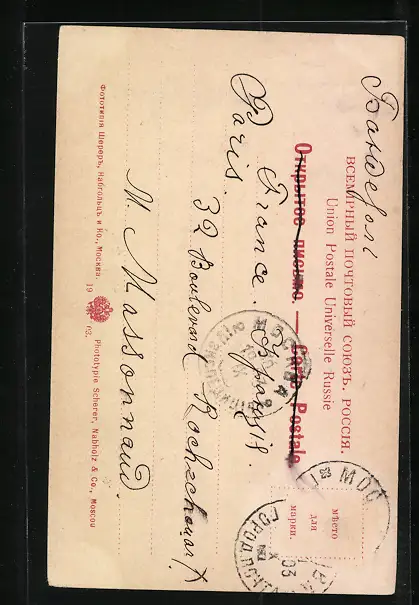 Бандероль
ВСЕМІРНЫЙ ПОЧТОВЫЙ СОЮЗЪ. РОССІЯ.
Union Postale Universelle Russie
Открытое письмо. — Carte Postale
мѣсто
для
марки.
France.
Paris.
32 Boulevard Rochechouart
M. Massonnaud.
Фототипія Шереръ, Набгольцъ и Ко., Москва. 19 03. Phototypie Scherer, Nabholz & Co., Moscou
МОСКВА